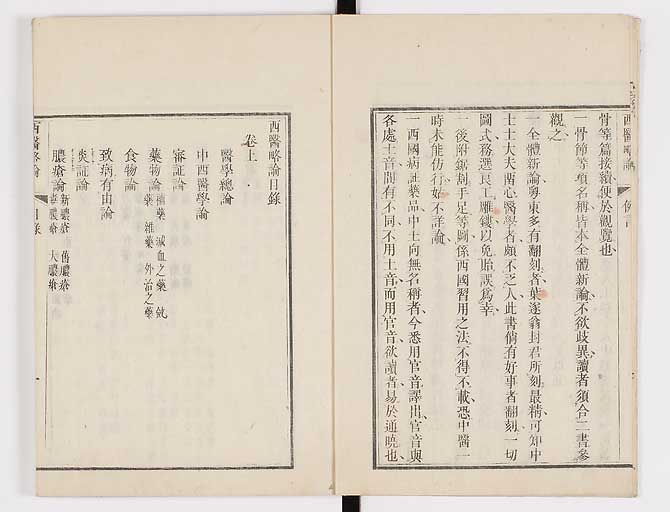 西醫略論 例言
骨等篇接續便於觀覽也
一骨節等項名稱皆本全體新論不欲歧異讀者須合二書參
觀之
一全體新論粵東多有翻刻者葉遂翁封君所刻最精可知中
土士大夫留心醫學者頗不乏人此書倘有好事者翻刻一切
圖式務選良工雕鏤以免貽誤爲幸
一後附鋸割手足等圖係西國習用之法不得不載恐中醫一
時未能仿行姑不詳論
一西國病証藥品中土向無名稱者今悉用官音譯出官音與
各處土音間有不同不用土音而用官音欲讀者易於通曉也
西醫略論目錄
卷上
醫學總論
中西醫學論
審証論
藥物論 補藥 減血之藥 斂
藥 雜藥 外治之藥
食物論
致病有由論
炎証論
膿瘡論 新膿瘡 舊膿瘡
毒膿瘡 大膿瘡
西醫略論 目錄